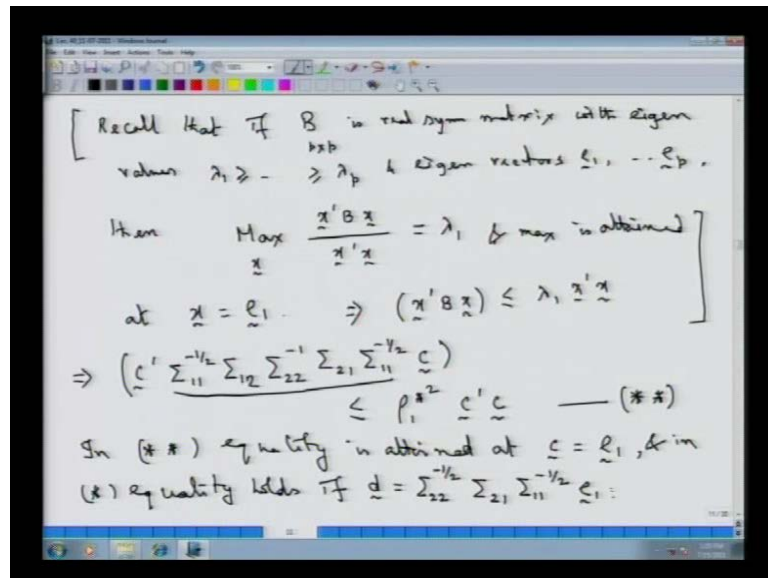 Lec 40, 11-07-2011 - Windows Journal
File Edit View Insert Actions Tools Help
[ Recall that if B is real sym matrix with eigen
p×p
values λ₁ ≥ - ≥ λ_p & eigen vectors e₁, -- e_p.
then Max x'Bx / x'x = λ₁ & max is attained
x
at x = e₁. ⇒ (x'Bx) ≤ λ₁ x'x ]
⇒ (c' Σ₁₁^{-1/2} Σ₁₂ Σ₂₂^{-1} Σ₂₁ Σ₁₁^{-1/2} c)
≤ ρ₁*² c'c —— (**)
In (**) equality is attained at c = e₁, & in
(*) equality holds if d = Σ₂₂^{-1/2} Σ₂₁ Σ₁₁^{-1/2} e₁.